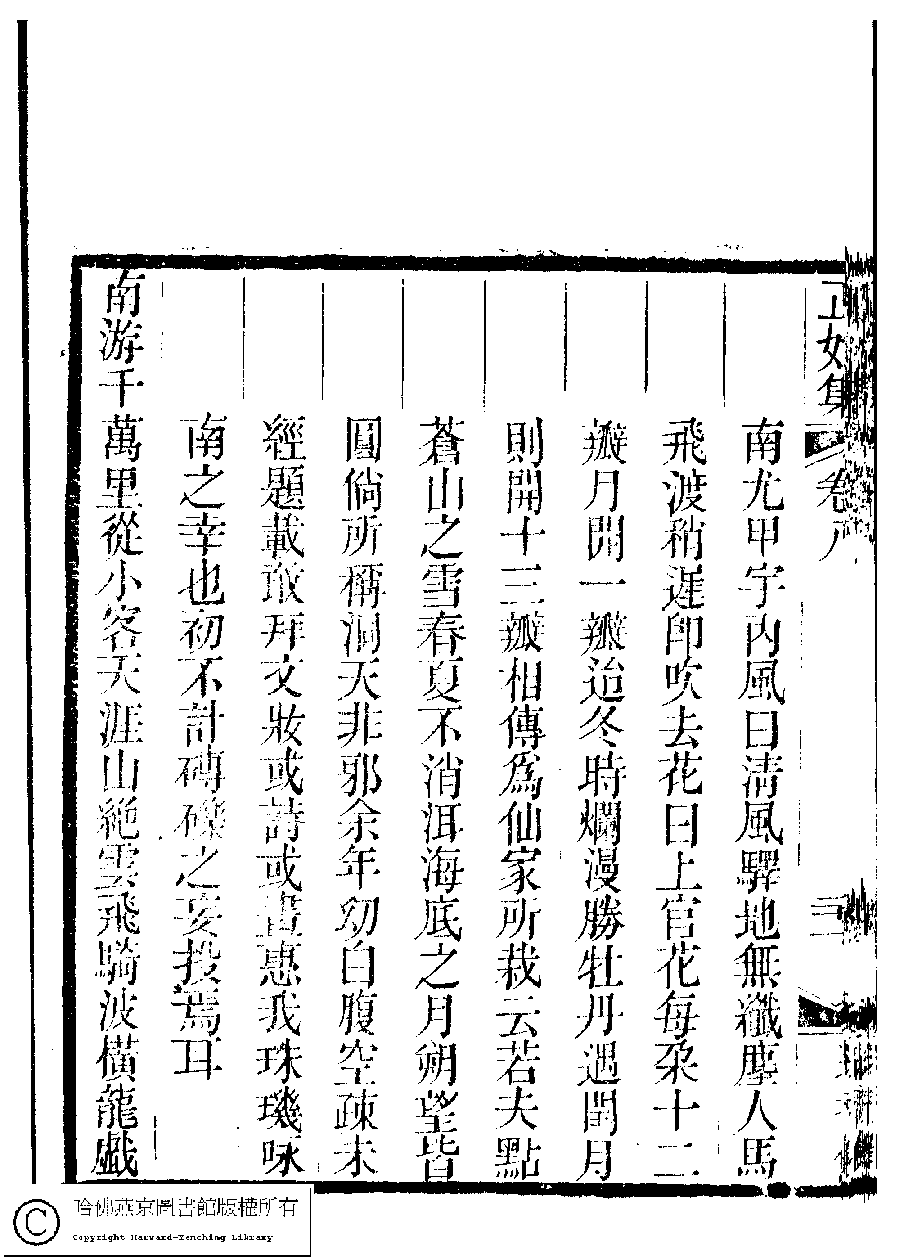 南尤甲宇內風曰淸風驛地無纖塵人馬
飛渡稍遲卽吹去花曰上官花每朶十二
瓣月開一瓣迨冬時爛漫勝牡丹遇閏月
則開十三瓣相傳爲仙家所栽云若夫點
蒼山之雪春夏不消洱海底之月朔望皆
圓倘所稱洞天非邪余年幼白腹空疎未
經題載敢拜文妝或詩或畫惠我珠璣咏
南之幸也初不計磚礫之妄投焉耳
南游千萬里從小客天涯山絶雲飛騎波橫龍戲
女集 卷八 三
哈佛燕京圖書館版權所有
Copyright Harvard-Yenching Library